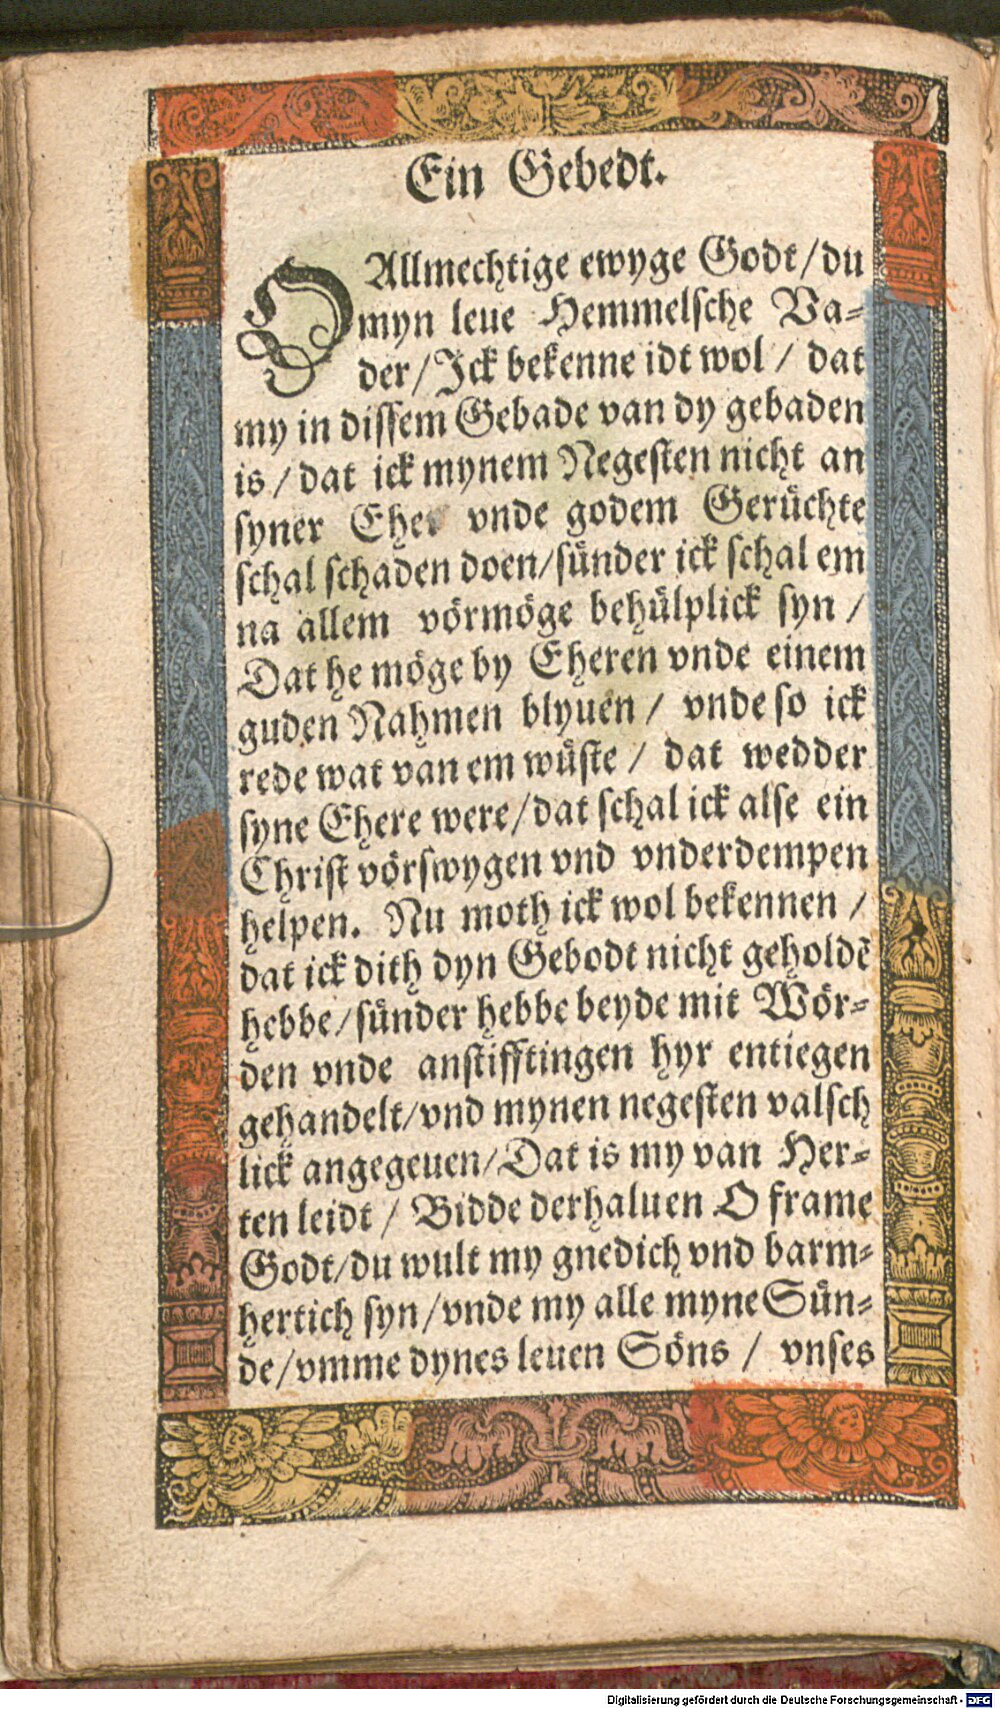 Ein Gebedt.
O Allmechtige ewyge Godt/du
myn leue Hemmelsche Va-
der/Ick bekenne idt wol / dat
my in dissem Gebade van dy gebaden
is / dat ick mynem Negesten nicht an
syner Eher vnde godem Gerüchte
schal schaden doen/sünder ick schal em
na allem vörmöge behülplick syn /
Dat he möge by Eheren vnde einem
guden Nahmen blyuen / vnde so ick
rede wat van em wüste / dat wedder
syne Ehere were/dat schal ick alse ein
Christ vörswygen vnd vnderdempen
helpen. Nu moth ick wol bekennen /
dat ick dith dyn Gebodt nicht geholdē
hebbe/sünder hebbe beyde mit Wör-
den vnde anstifftingen hyr entiegen
gehandelt/vnd mynen negesten valsch
lick angegeuen/Dat is my van Her-
ten leidt / Bidde derhaluen O frame
Godt/du wult my gnedich vnd barm-
hertich syn/vnde my alle myne Sün-
de/vmme dynes leuen Söns / vnses
Digitalisierung gefördert durch die Deutsche Forschungsgemeinschaft - DFG